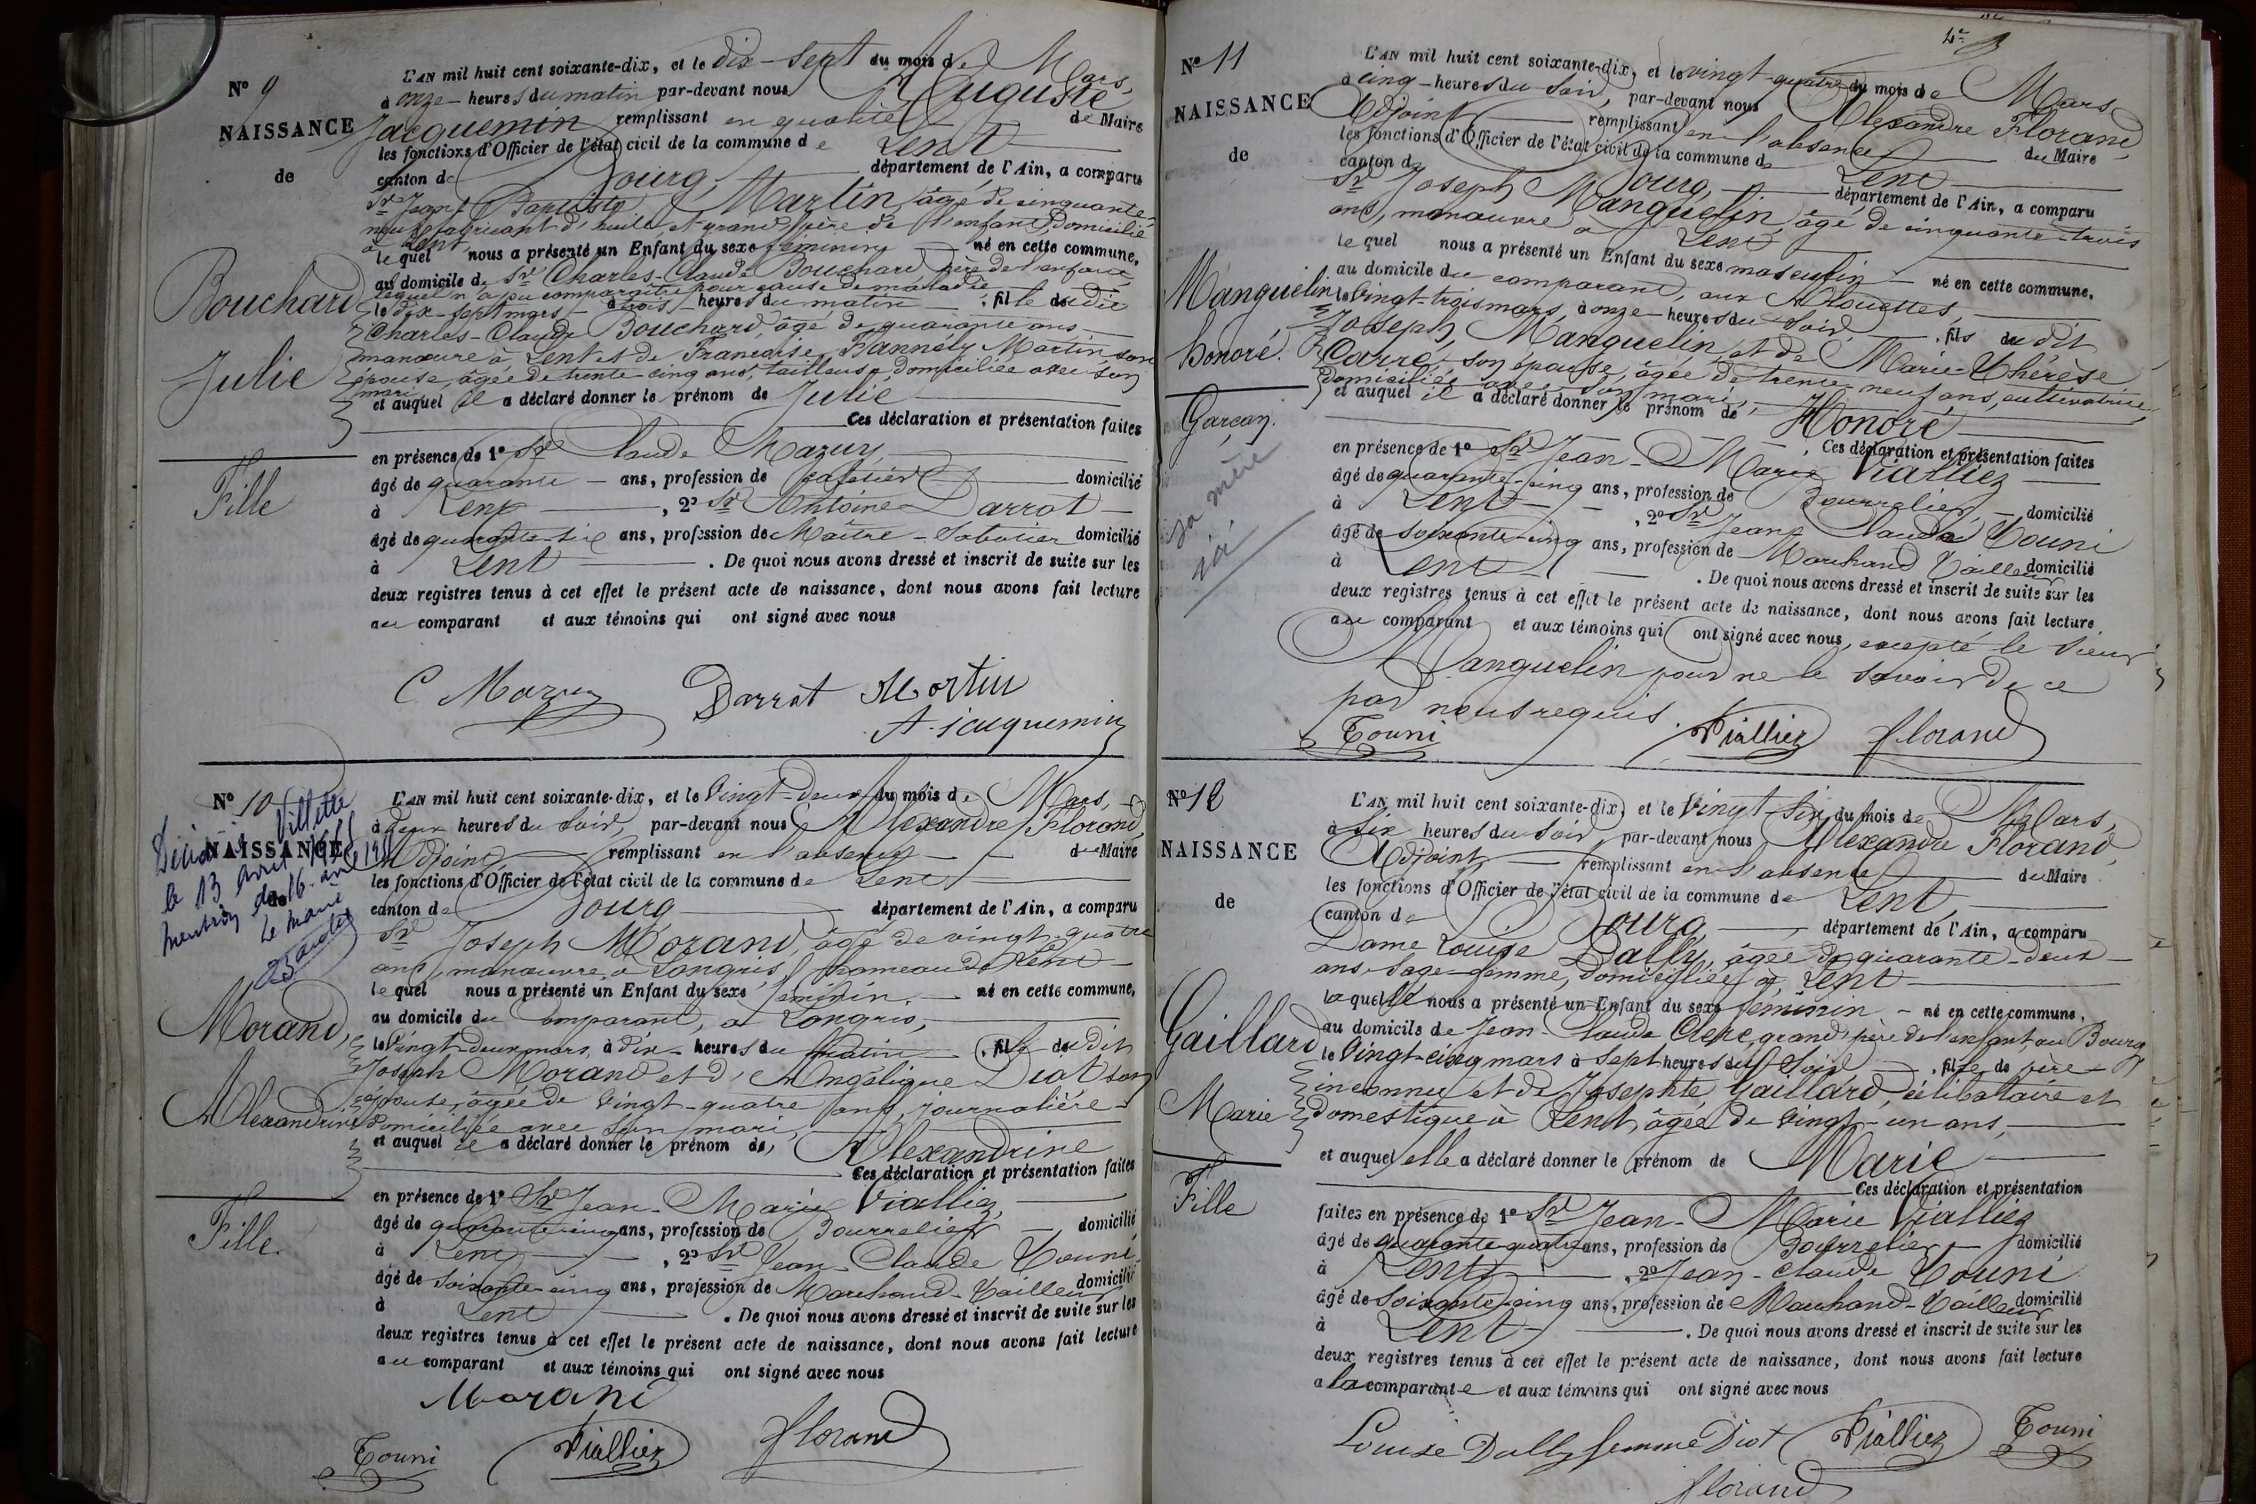 N° 9
NAISSANCE
de
Bouchard
Julie
Fille
L'AN mil huit cent soixante-dix, et le dix-sept du mois de Mars,
à onze heures du matin par-devant nous Auguste
Jacquemin remplissant en qualité de Maire
les fonctions d'Officier de l'état civil de la commune de Lent
canton de Bourg, département de l'Ain, a comparu
Sr Jean Baptiste Martin, âgé de cinquante-
neuf fabricant d'huile, et grand père de l'enfant, Domicilié
à Lent
le quel nous a présenté un Enfant du sexe féminin né en cette commune,
au domicile de Sr Charles-Claude Bouchard père de l'enfant,
lequel n'a pu comparaître pour cause de maladie
le dix-sept mars à trois heures du matin, fille du dit
Charles-Claude Bouchard, âgé de quarante ans
manœuvre à Lent et de Françoise Martin son
épouse, âgée de trente cinq ans, tailleuse domiciliée avec son
mari
et auquel il a déclaré donner le prénom de Julie
Ces déclaration et présentation faites
en présence de 1° Sr Claude Mazuy
âgé de quarante ans, profession de cafetier domicilié
à Lent, 2° Sr Antoine Darrot
âgé de quarante-six ans, profession de Maître-Sabotier domicilié
à Lent. De quoi nous avons dressé et inscrit de suite sur les
deux registres tenus à cet effet le présent acte de naissance, dont nous avons fait lecture
au comparant et aux témoins qui ont signé avec nous
C Mazuy Darrot Martin
A. Jacquemin
N° 10
NAISSANCE
de
Villette
le 13 avril 1955
mention du 16 avril 1955
Le Maire
Morand,
Alexandrine
Fille.
L'AN mil huit cent soixante-dix, et le Vingt-Deux du mois de Mars,
à Deux heures du soir, par-devant nous Alexandre Florand,
Adjoint remplissant en l'absence du Maire
les fonctions d'Officier de l'état civil de la commune de Lent
canton de Bourg département de l'Ain, a comparu
Sr Joseph Morand, âgé de vingt-quatre
ans, manœuvre, à Longris, hameau de Lent
le quel nous a présenté un Enfant du sexe féminin. né en cette commune,
au domicile du comparant, à Longris,
le Vingt-Deux mars, à dix heures du matin, fille du dit
Joseph Morand et d'Angélique Diot son
épouse, âgée de vingt-quatre ans, journalière
Domiciliée avec son mari,
et auquel il a déclaré donner le prénom de, Alexandrine
Ces déclaration et présentation faites
en présence de 1° Sr Jean-Marie Vialliez,
âgé de quarante-cinq ans, profession de Bourrelier domicilié
à Lent, 2° Sr Jean-Claude Touni
âgé de soixante-cinq ans, profession de Marchand-Tailleur domicilié
à Lent. De quoi nous avons dressé et inscrit de suite sur les
deux registres tenus à cet effet le présent acte de naissance, dont nous avons fait lecture
au comparant et aux témoins qui ont signé avec nous
Morand
Touni Vialliez Florand
N° 11
NAISSANCE
de
Manguelin
honoré.
Garçon.
sa mère
ici
L'AN mil huit cent soixante-dix, et le vingt-quatre du mois de Mars
à cinq heures du soir, par-devant nous Alexandre Florand,
Adjoint remplissant en l'absence du Maire
les fonctions d'Officier de l'état civil de la commune de Lent
canton de Bourg, département de l'Ain, a comparu
Sr Joseph Manguelin, âgé de cinquante-trois
ans, manœuvre à Lent
le quel nous a présenté un Enfant du sexe masculin né en cette commune,
au domicile du comparant, aux Alouettes,
le Vingt-trois mars, à onze heures du soir, fils du dit
Joseph Manguelin, et de Marie-Thérèse
Carré, son épouse, âgée de trente-neuf ans, cultivatrice,
domiciliée avec son mari,
et auquel il a déclaré donner le prénom de Honoré
Ces déclaration et présentation faites
en présence de 1° Sr Jean-Marie Vialliez
âgé de quarante-cinq ans, profession de Bourrelier domicilié
à Lent, 2° Sr Jean Claude Touni
âgé de soixante-cinq ans, profession de Marchand Tailleur domicilié
à Lent. De quoi nous avons dressé et inscrit de suite sur les
deux registres tenus à cet effet le présent acte de naissance, dont nous avons fait lecture
au comparant et aux témoins qui ont signé avec nous, excepté le sieur
Manguelin pour ne le savoir de ce
par nous requis.
Touni Vialliez Florand
N° 12
NAISSANCE
de
Gaillard
Marie
Fille
L'AN mil huit cent soixante-dix, et le Vingt-Six du mois de Mars,
à Six heures du soir, par-devant nous Alexandre Florand,
Adjoint remplissant en l'absence du Maire
les fonctions d'Officier de l'état civil de la commune de Lent,
canton de Bourg, département de l'Ain, a comparu
Dame Louise Dally, âgée de quarante-deux
ans Sage-femme, domiciliée à Lent
laquelle nous a présenté un Enfant du sexe féminin né en cette commune,
au domicile de Jean Claude Clerc, grand père de l'enfant, au Bourg
le Vingt-cinq mars à sept heures du soir, fille de père
inconnu et de Josephte Gaillard, célibataire et
domestique à Lent, âgée de vingt-un ans,
et auquel elle a déclaré donner le prénom de Marie
Ces déclaration et présentation
faites en présence de 1° Sr Jean-Marie Vialliez
âgé de quarante-quatre ans, profession de Bourrelier domicilié
à Lent, 2° Jean-Claude Touni
âgé de soixante-cinq ans, profession de Marchand-Tailleur domicilié
à Lent. De quoi nous avons dressé et inscrit de suite sur les
deux registres tenus à cet effet le présent acte de naissance, dont nous avons fait lecture
a la comparante et aux témoins qui ont signé avec nous
Louise Dally femme Diot Vialliez Touni
Florand